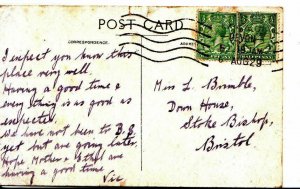 POST CARD
CORRESPONDENCE.
ADDRESS
I expect you know this
place very well.
Having a good time &
every thing is as good as
expected.
We have not been to B.B.
yet but are going later.
Hope Mother & Ethel are
having a good time.
Vic
AU 29
Miss L. Bumble,
Down House,
Stoke Bishop,
Bristol